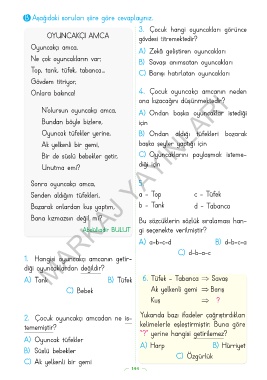 B Aşağıdaki soruları şiire göre cevaplayınız.
OYUNCAKÇI AMCA
Oyuncakçı amca,
Ne çok oyuncakların var;
Top, tank, tüfek, tabanca...
Gövdem titriyor,
Onlara bakınca!
N'olursun oyuncakçı amca,
Bundan böyle bizlere,
Oyuncak tüfekler yerine,
Ak yelkenli bir gemi,
Bir de süslü bebekler getir.
Unutma emi?
Sonra oyuncakçı amca,
Senden aldığım tüfekleri,
Bozarak onlardan kuş yaptım,
Bana kızmazsın değil mi?
BULUT
1. Hangisi oyuncakçı amcanın getir-
diği oyuncaklardan değildir?
A) Tank
B) Tüfek
C) Bebek
2. Çocuk oyuncakçı amcadan ne is-
tememiştir?
A) Oyuncak tüfekler
B) Süslü bebekler
C) Ak yelkenli bir gemi
3. Çocuk hangi oyuncakları görünce
gövdesi titremektedir?
A) Zekâ geliştiren oyuncakları
B) Savaşı anımsatan oyuncakları
C) Barışı hatırlatan oyuncakları
4. Çocuk oyuncakçı amcanın neden
ona kızacağını düşünmektedir?
A) Ondan başka oyuncaklar istediği
için
B) Ondan aldığı tüfekleri bozarak
başka şeyler yaptığı için
C) Oyuncaklarını paylaşmak isteme-
diği için
5.
a - Top
c - Tüfek
b - Tank
d - Tabanca
Bu sözcüklerin sözlük sıralaması han-
gi seçenekte verilmiştir?
A) a-b-c-d
B) d-b-c-a
C) d-b-a-c
6. Tüfek - Tabanca ⇒ Savaş
Ak yelkenli gemi ⇒ Barış
Kuş ⇒ ?
Yukarıda bazı ifadeler çağrıştırdıkları
kelimelerle eşleştirmiştir. Buna göre
"?" yerine hangisi getirilemez?
A) Harp
B) Hürriyet
C) Özgürlük
YAYINLARI